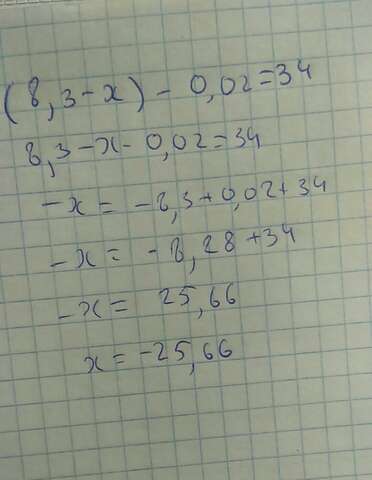 (8,3-x)-0,02=34
8,3-x-0,02=34
-x=-8,3+0,02+34
-x=-8,28+34
-x=25,66
x=-25,66